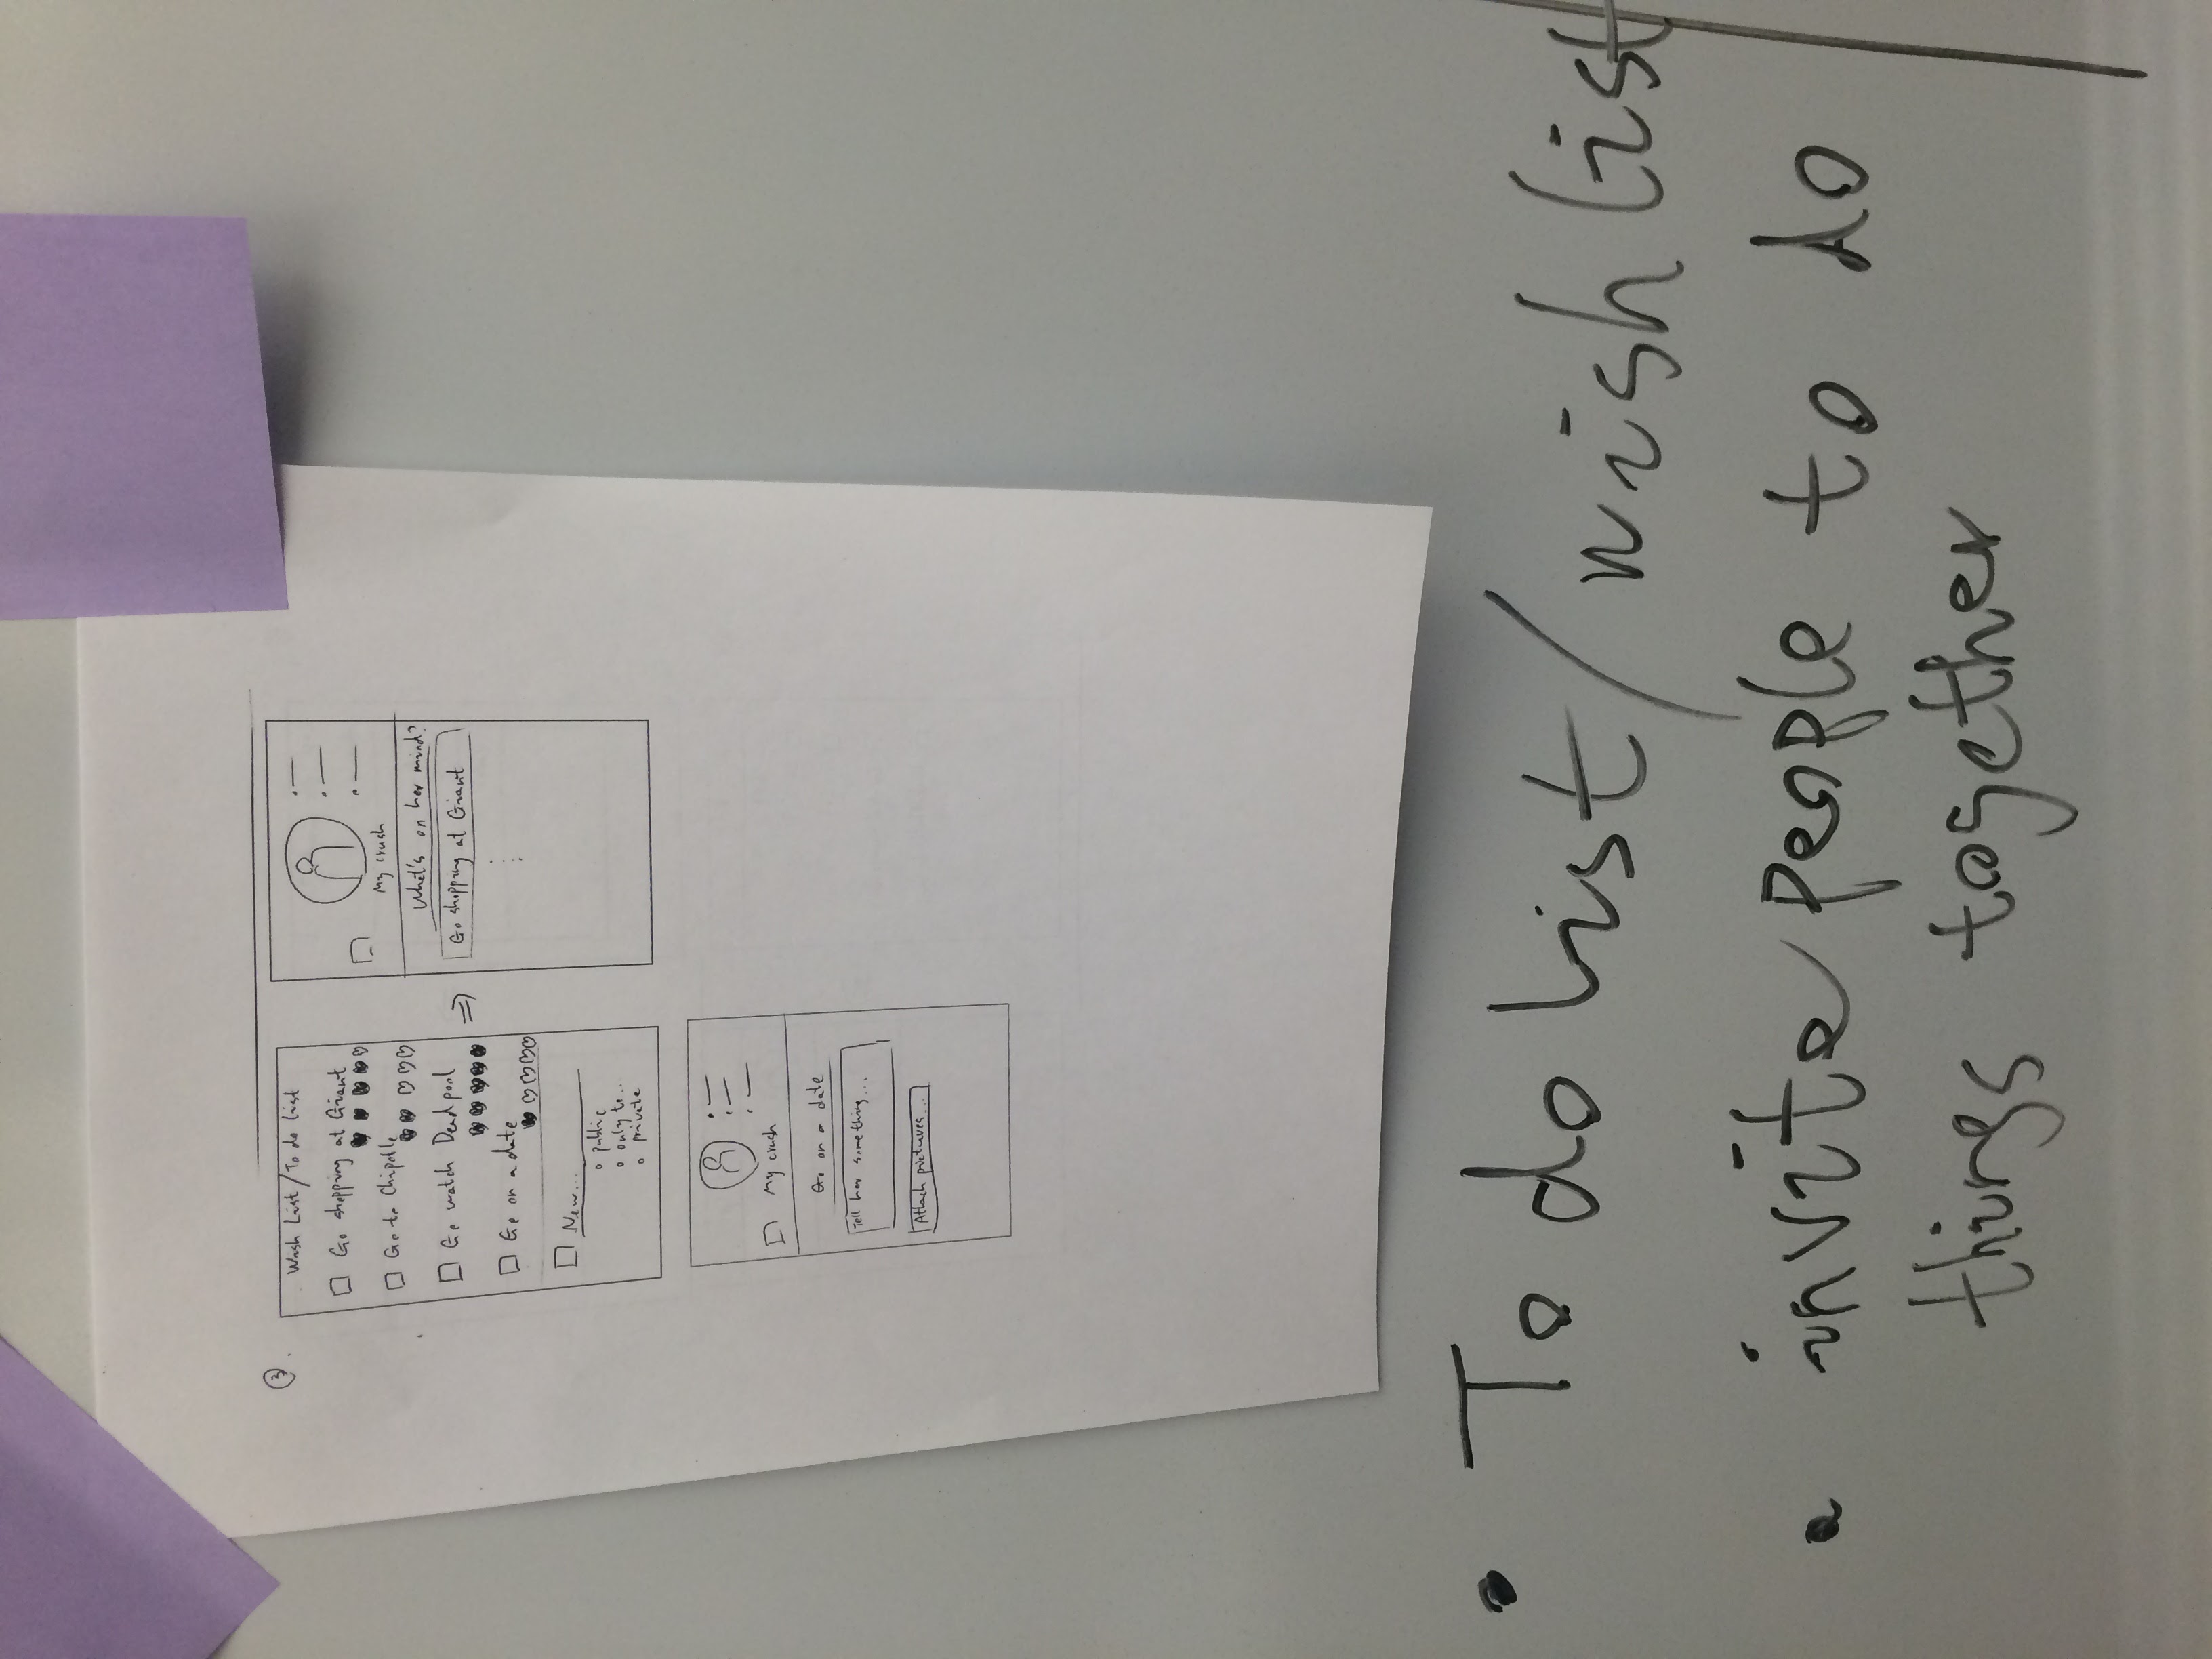 3.
Wish List/To do list
Go shopping at Giant
Go to Chipotle
Go watch Deadpool
Go on a date
New...
public
only to..
private
My crush
What's on her mind?
Go shopping at Giant
My crush
Go on a date
Tell her something...
Attach pictures...
• To do list/wish list
• invite people to do
things together